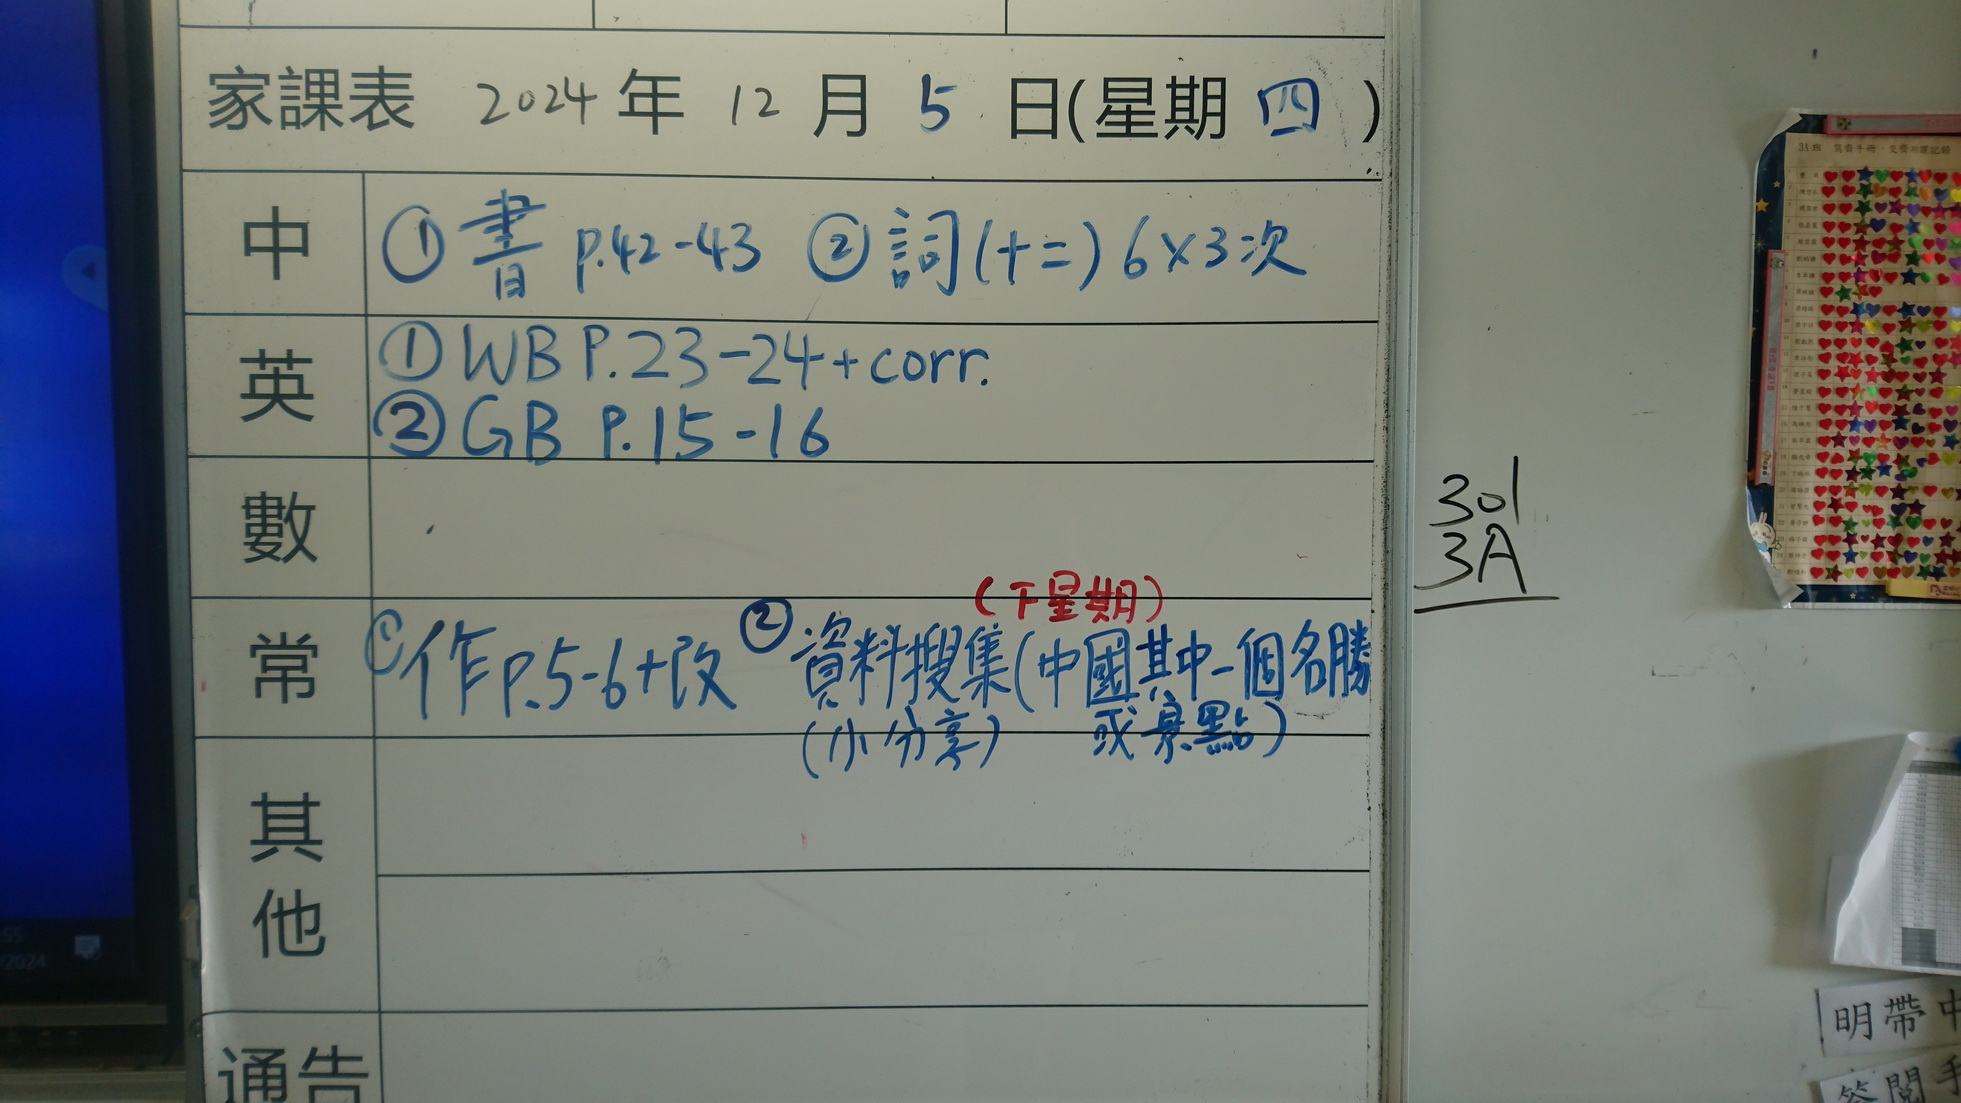 家課表 2024 年 12 月 5 日(星期 四 )
中 ①書 p.42-43 ②詞(十二) 6×3次
英 ①WB P.23-24+corr.
②GB P.15-16
數
(下星期)
常 ①作p.5-6+改 ②資料搜集(中國其中一個名勝
(小分享) 或景點)
其他
通告
301
3A
2024
明帶中
簽閱手